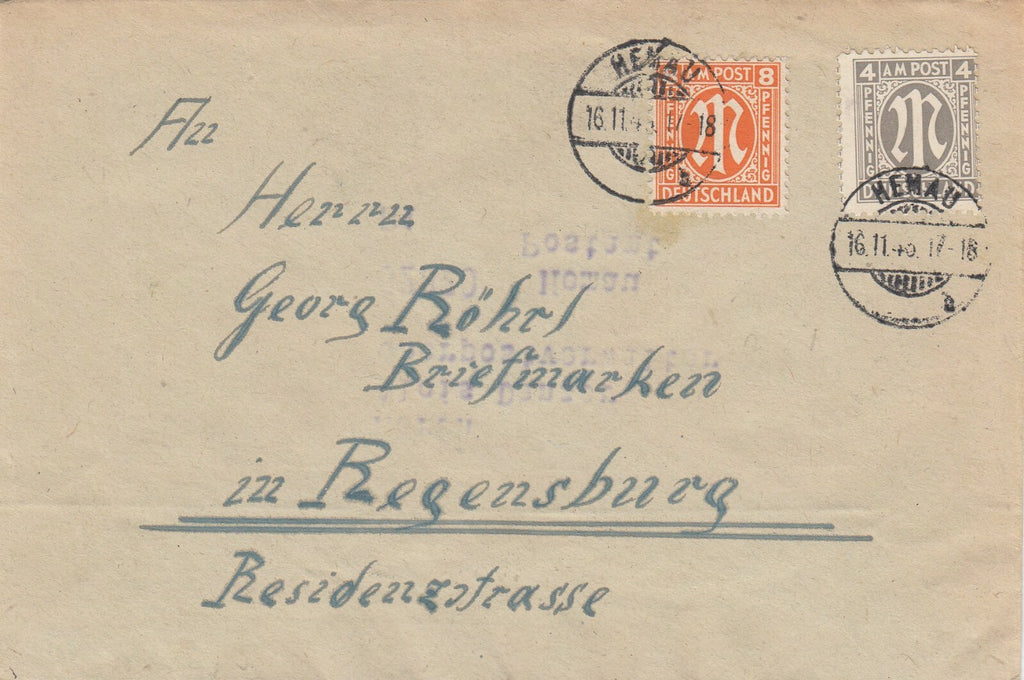 HEMAU
16.11.45.17-18
a
AM POST 8
PFENNIG
DEUTSCHLAND
4 AM POST 4
PFENNIG PFENNIG
HEMAU
16.11.45.17-18
a
An
Herrn
Georg Röhrl
Briefmarken
in Regensburg
Residenzstrasse
Postamt
Hemau